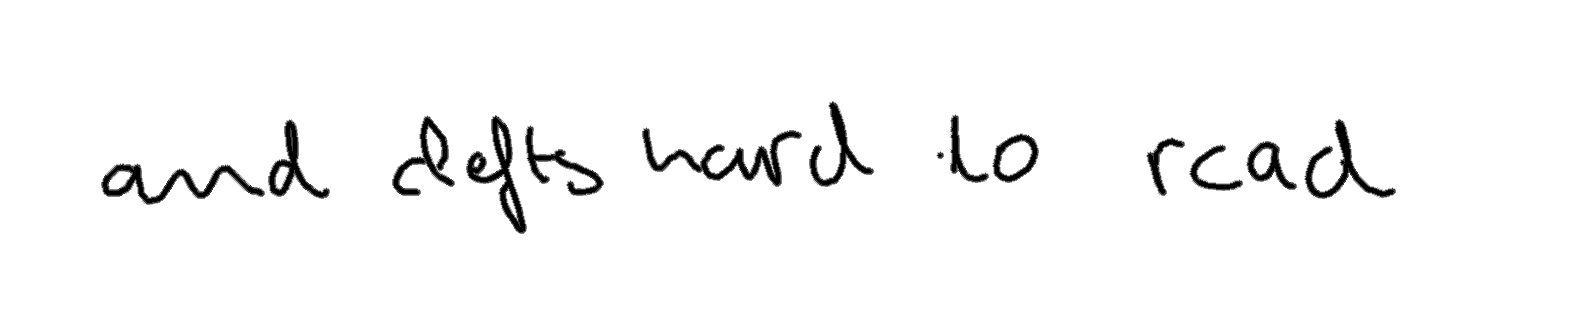 and clefts hard to read